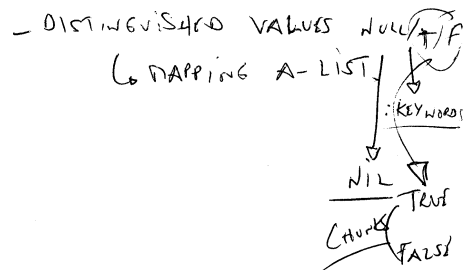 - DISTINGUISHED VALUES NULL/T/F
↳ MAPPING A-LIST
:KEYWORDS
NIL
TRUE
CHUNK
FALSE